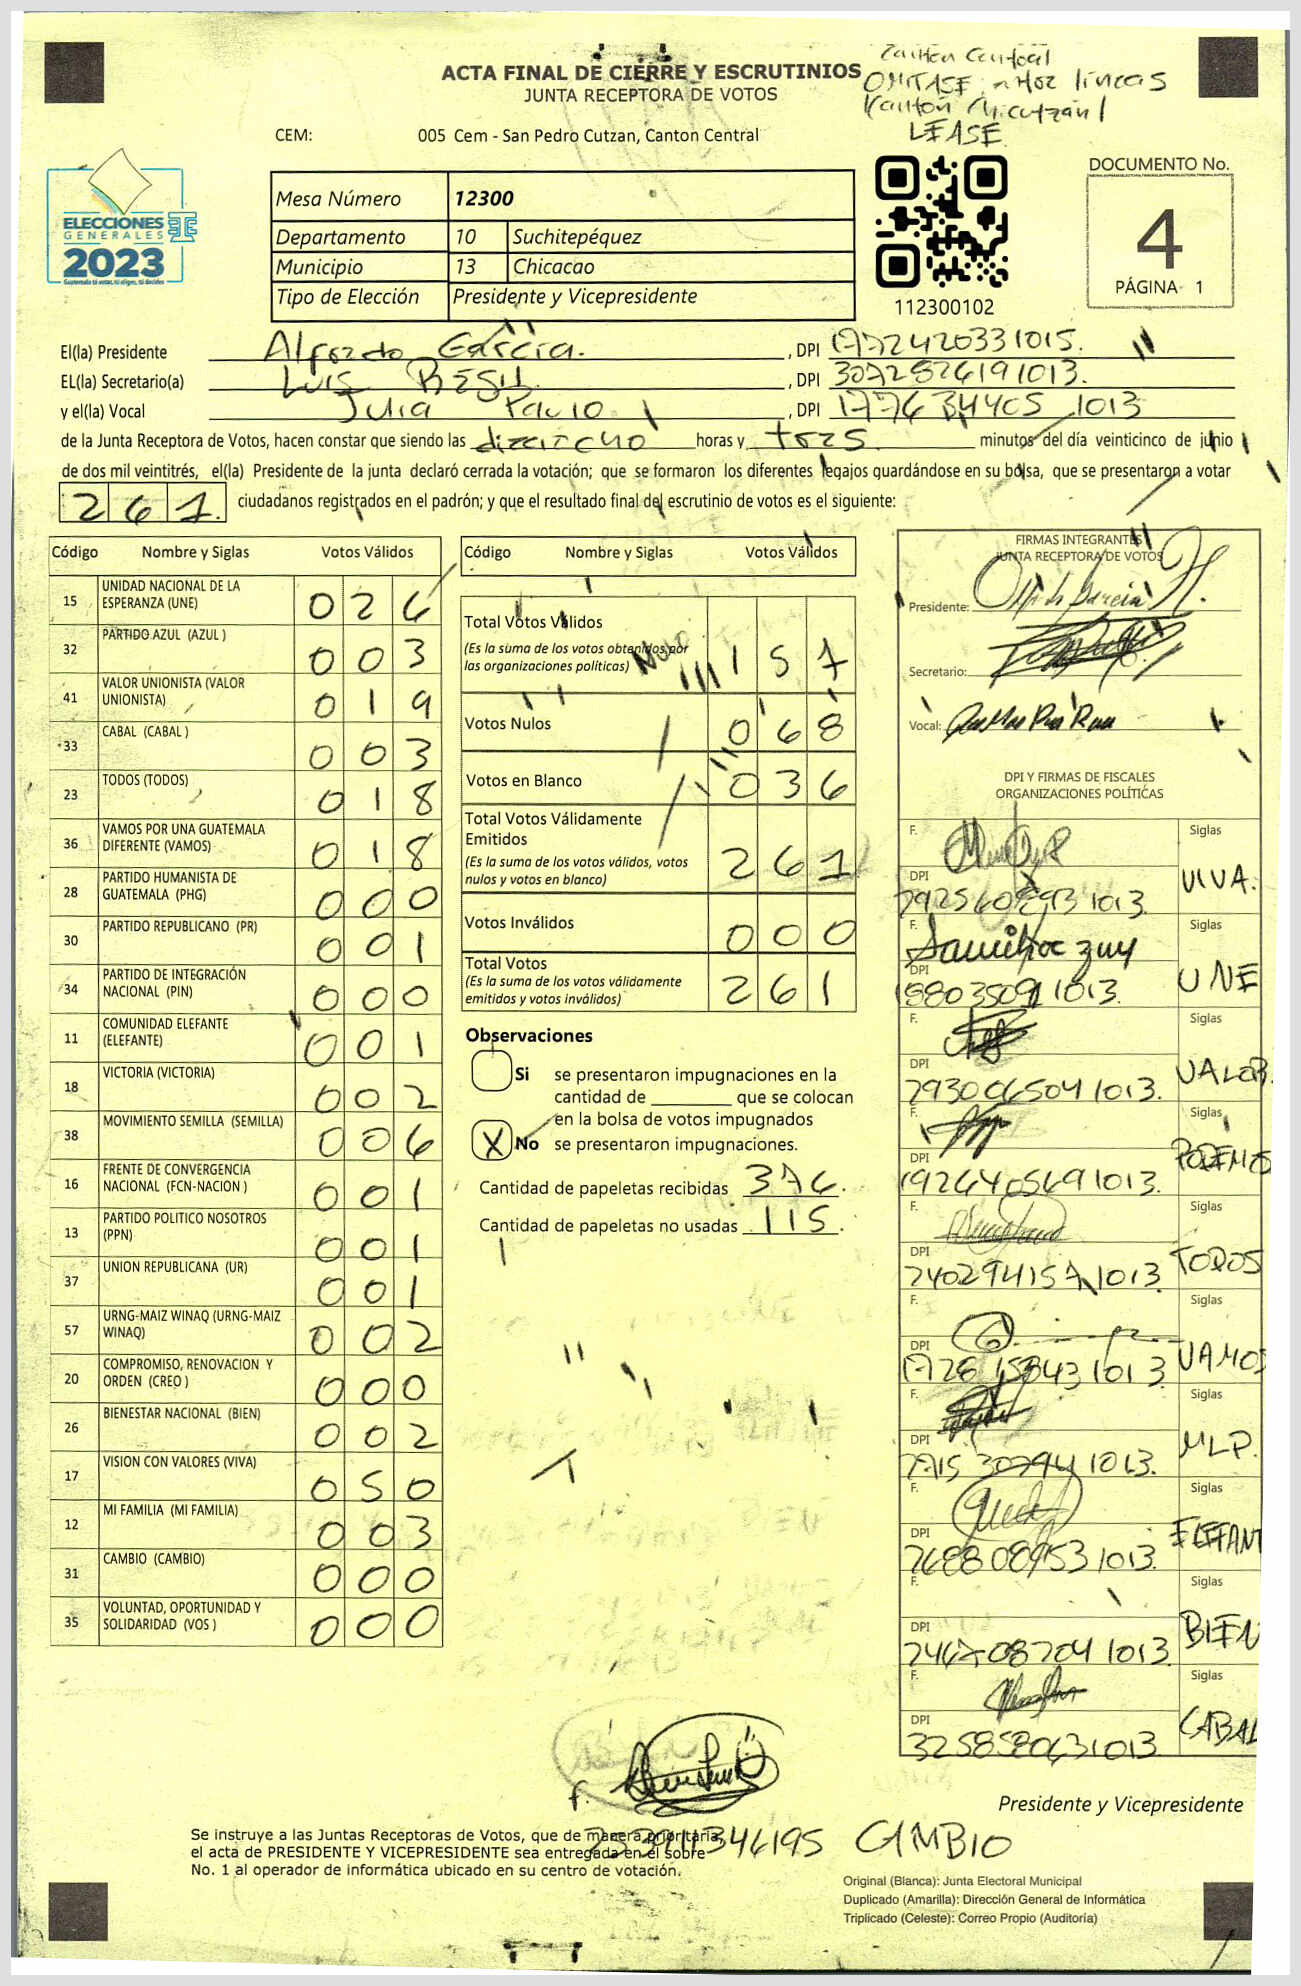 Canton Central
OMITASE
LEASE
ACTA FINAL DE CIERRE Y ESCRUTINIOS
JUNTA RECEPTORA DE VOTOS
CEM: 005 Cem - San Pedro Cutzan, Canton Central
ELECCIONES
GENERALES
2023
Guatemala tú votas, tú eliges, tú decides
Mesa Número 12300
Departamento 10 Suchitepéquez
Municipio 13 Chicacao
Tipo de Elección Presidente y Vicepresidente
112300102
DOCUMENTO No.
4
PÁGINA 1
El(la) Presidente Alfredo García. , DPI
EL(la) Secretario(a) Luis , DPI
y el(la) Vocal Julia , DPI
de la Junta Receptora de Votos, hacen constar que siendo las horas y minutos del día veinticinco de junio
de dos mil veintitrés, el(la) Presidente de la junta declaró cerrada la votación; que se formaron los diferentes legajos guardándose en su bolsa, que se presentaron a votar
261 ciudadanos registrados en el padrón; y que el resultado final del escrutinio de votos es el siguiente:
Código Nombre y Siglas Votos Válidos
15 UNIDAD NACIONAL DE LA ESPERANZA (UNE) 026
32 PARTIDO AZUL (AZUL ) 003
41 VALOR UNIONISTA (VALOR UNIONISTA) 019
33 CABAL (CABAL ) 003
23 TODOS (TODOS) 018
36 VAMOS POR UNA GUATEMALA DIFERENTE (VAMOS) 018
28 PARTIDO HUMANISTA DE GUATEMALA (PHG) 000
30 PARTIDO REPUBLICANO (PR) 001
34 PARTIDO DE INTEGRACIÓN NACIONAL (PIN) 000
11 COMUNIDAD ELEFANTE (ELEFANTE) 001
18 VICTORIA (VICTORIA) 002
38 MOVIMIENTO SEMILLA (SEMILLA) 006
16 FRENTE DE CONVERGENCIA NACIONAL (FCN-NACION ) 001
13 PARTIDO POLITICO NOSOTROS (PPN) 001
37 UNION REPUBLICANA (UR) 001
57 URNG-MAIZ WINAQ (URNG-MAIZ WINAQ) 002
20 COMPROMISO, RENOVACION Y ORDEN (CREO ) 000
26 BIENESTAR NACIONAL (BIEN) 002
17 VISION CON VALORES (VIVA) 050
12 MI FAMILIA (MI FAMILIA) 003
31 CAMBIO (CAMBIO) 000
35 VOLUNTAD, OPORTUNIDAD Y SOLIDARIDAD (VOS ) 000
Código Nombre y Siglas Votos Válidos
Total Votos Válidos 157
(Es la suma de los votos obtenidos por
las organizaciones políticas)
Nulo
Votos Nulos 068
Votos en Blanco 036
Total Votos Válidamente
Emitidos 261
(Es la suma de los votos válidos, votos
nulos y votos en blanco)
Votos Inválidos 000
Total Votos 261
(Es la suma de los votos válidamente
emitidos y votos inválidos)
Observaciones
Si se presentaron impugnaciones en la
cantidad de ________ que se colocan
en la bolsa de votos impugnados
X No se presentaron impugnaciones.
Cantidad de papeletas recibidas 376.
Cantidad de papeletas no usadas 115.
FIRMAS INTEGRANTES
JUNTA RECEPTORA DE VOTOS
Presidente:
Secretario:
Vocal:
DPI Y FIRMAS DE FISCALES
ORGANIZACIONES POLÍTICAS
F. Siglas
DPI VIVA.
F. Siglas
DPI UNE
F. Siglas
DPI VALOR.
F. Siglas
DPI PODEMOS
F. Siglas
DPI TODOS
F. Siglas
DPI VAMOS
F. Siglas
DPI MLP.
F. Siglas
DPI ELEFANT
F. Siglas
DPI BIEN
F. Siglas
DPI CABAL
Presidente y Vicepresidente
f.
CAMBIO
Se instruye a las Juntas Receptoras de Votos, que de manera prioritaria,
el acta de PRESIDENTE Y VICEPRESIDENTE sea entregada en el sobre
No. 1 al operador de informática ubicado en su centro de votación.
Original (Blanca): Junta Electoral Municipal
Duplicado (Amarilla): Dirección General de Informática
Triplicado (Celeste): Correo Propio (Auditoría)